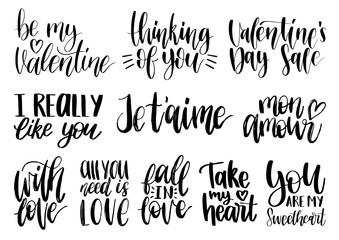 be my
valentine
thinking
of you
Valentine's
Day Sale
I REALLY
like you
Je t'aime
mon
amour
with
love
all you
need is
LOVE
fall
IN
love
Take
my
heart
You
ARE MY
Sweetheart